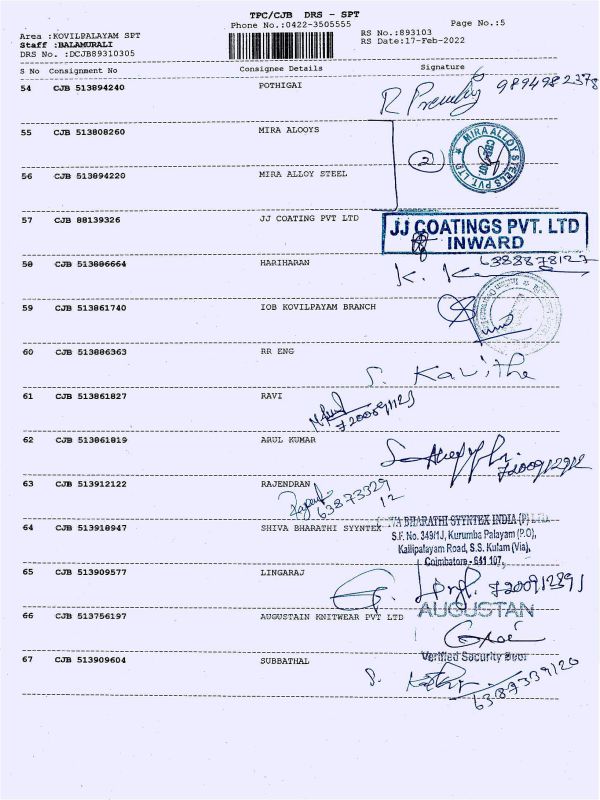 TPC/CJB DRS - SPT
Phone No.:0422-3505555 Page No.:5
Area :KOVILPALAYAM SPT RS No.:893103
Staff :BALAMURALI RS Date:17-Feb-2022
DRS No. :DCJB89310305
S No Consignment No Consignee Details Signature
54 CJB 513894240 POTHIGAI 9894982378
55 CJB 513808260 MIRA ALOOYS
2
MIRA ALLOY STEELS PVT. LTD
56 CJB 513894220 MIRA ALLOY STEEL
57 CJB 88139326 JJ COATING PVT LTD
JJ COATINGS PVT. LTD
INWARD
58 CJB 513886664 HARIHARAN 6388878127
59 CJB 513861740 IOB KOVILPAYAM BRANCH
60 CJB 513886363 RR ENG
S. Kavitha
61 CJB 513861827 RAVI
62 CJB 513861819 ARUL KUMAR
63 CJB 513912122 RAJENDRAN
63873329
12
64 CJB 513918947 SHIVA BHARATHI SYYNTEX
VA BHARATHI SYYNTEX INDIA (P) LTD
S.F. No. 349/1J, Kurumba Palayam (P.O),
Kallipalayam Road, S.S. Kulam (Via),
Coimbatore - 641 107.
65 CJB 513909577 LINGARAJ
66 CJB 513756197 AUGUSTAIN KNITWEAR PVT LTD
AUGUSTAN
Verified Security
67 CJB 513909604 SUBBATHAL
6387339120